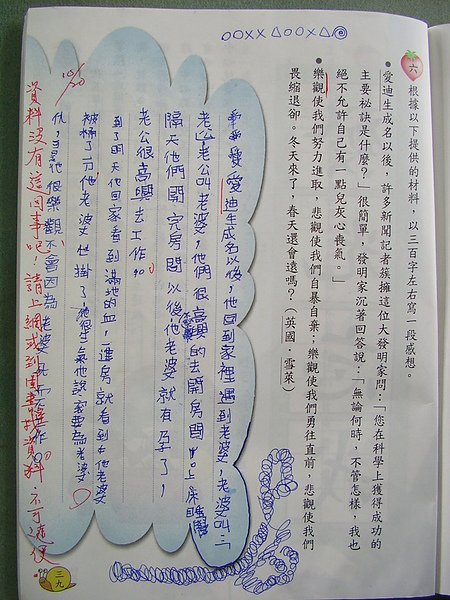 ○○××△○○×△
六 根據以下提供的材料，以三百字左右寫一段感想。
●愛迪生成名以後，許多新聞記者簇擁這位大發明家問：「您在科學上獲得成功的
主要祕訣是什麼？」很簡單，發明家沉著回答說：「無論何時，不管怎樣，我也
絕不允許自己有一點兒灰心喪氣。」
●樂觀使我們努力進取，悲觀使我們自暴自棄；樂觀使我們勇往直前，悲觀使我們
畏縮退卻。冬天來了，春天還會遠嗎？（英國 雪萊）
愛迪生成名以後，他回到家裡遇到老婆，老婆叫
老公老公叫老婆，他們很高興的去開房間
隔天他們開完房間以後他老婆就有孕了，
老公很高興去工作。
到了明天他回家看到滿地的血，一進房就看到他老婆
被捅了 他老婆也掛了，他很生氣他說要為老婆
仇，他很樂觀不會因為老婆
資料沒有這回事吧！請上網或到圖書找資料 不可隨便
三九